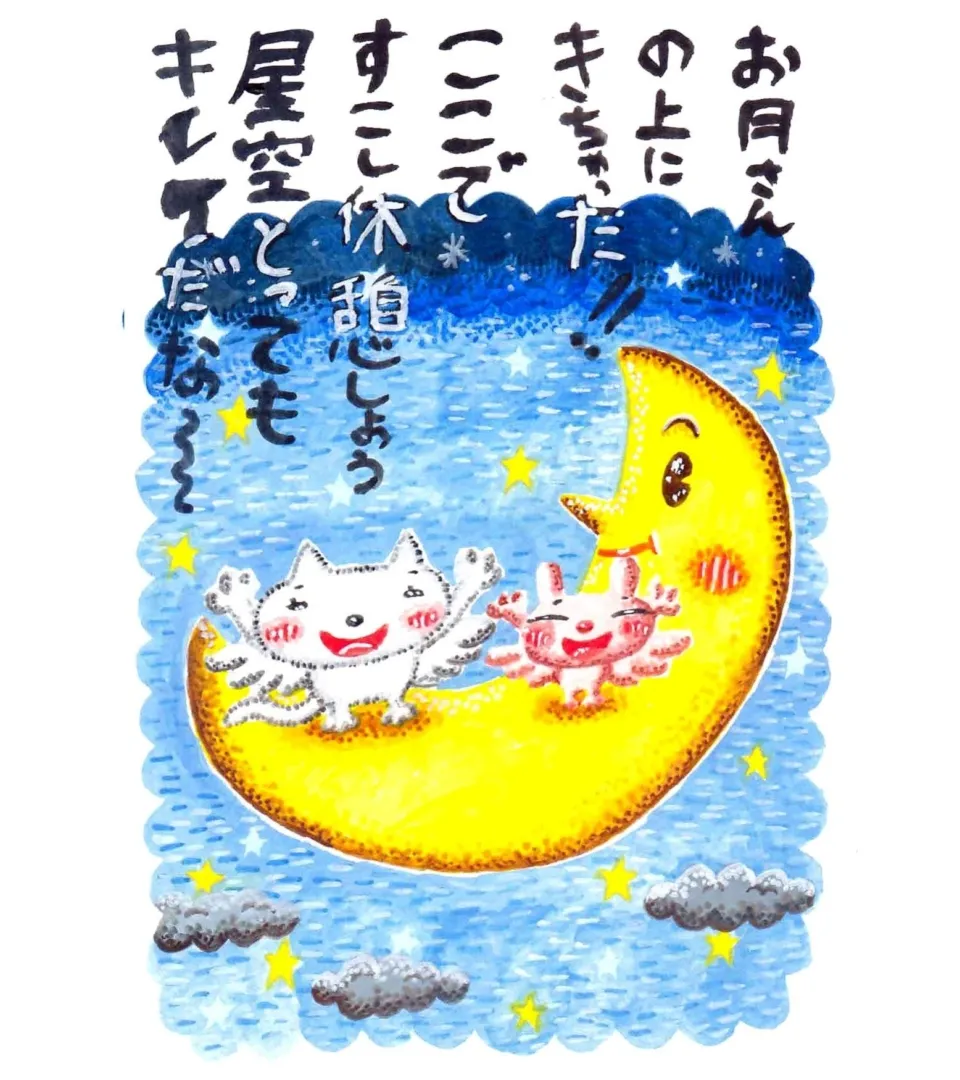 お月さん
の上に
きちゃった!!
ここで
すこし休憩しょう
星空とっても
キレイだなぁ〜〜